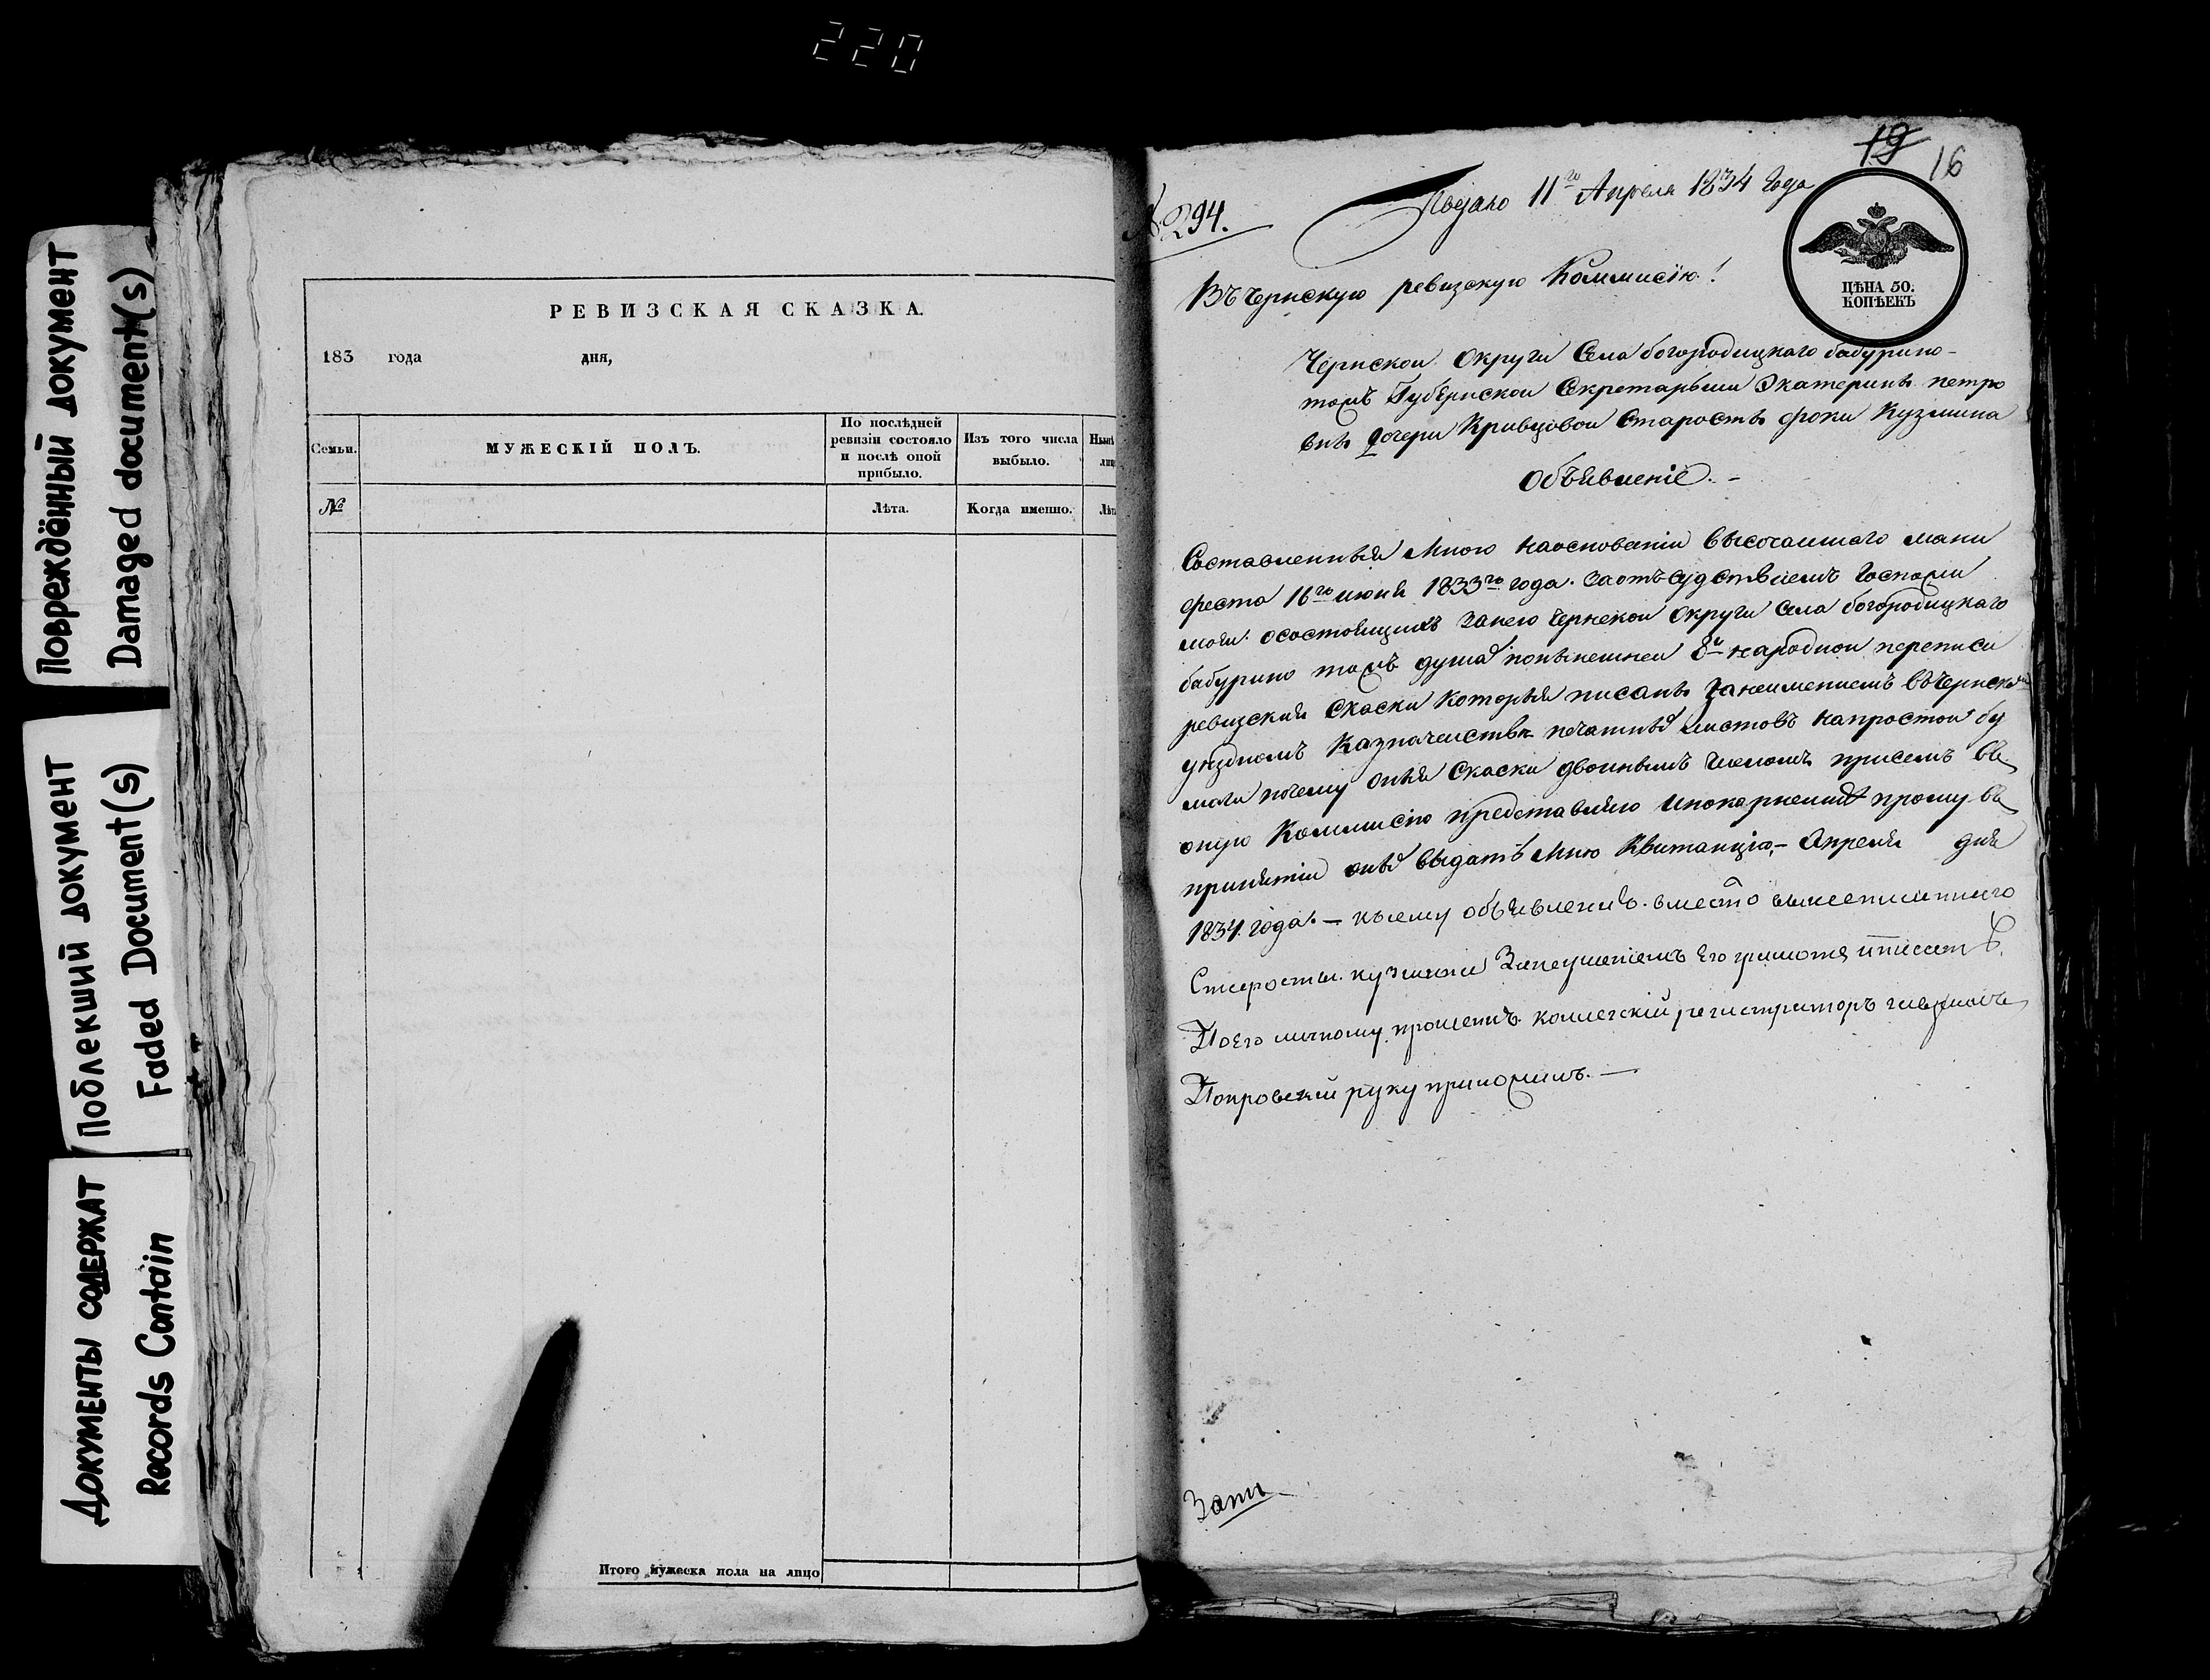 220
Повреждённый документ
Damaged document(s)
Поблекший документ
Faded Document(s)
Документы содержат
Records Contain
РЕВИЗСКАЯ СКАЗКА.
183 года дня,
Семьи. МУЖЕСКІЙ ПОЛЪ. По послѣдней ревизіи состояло и послѣ оной прибыло. Изъ того числа выбыло.
№ Лѣта. Когда именно.
Итого мужеска пола на лицо
19 16
№ 294. Подано 11го Апреля 1834 Года
ЦѢНА 50.
КОПѢЕКЪ
Въ Чернскую ревизскую Коммисію!
Чернской Округи Села богородицкаго бабурино-
тожъ Губернской Секретарьши Екатерины петро
вны дочери Кривцовой Старосты фоки Кузмина
Объявленіе. -
Составленныя Мною наосновании высочаишаго мани
феста 16го июня 1833го года. заотъсудствиемъ Госпожи
моеи. осостоящихъ занею чернской Округи села богородицкаго
бабурино тожъ душах понынешнеи 8й народнои переписи
ревизския Скаски Которыя писаны занеимениемъ въ Чернском
уездномъ Казначеистве печатных листовъ напростои бу
маги почему оныя Скаски двоинымъ числомъ присемъ въ
оную Коммисию представляю ипокорнеише прошу въ
принятии оных выдать мню Квитанцию,- Апреля дня
1834. года. — къ сему объявлению. вместо вышеписаннаго
Старосты. кузмина Занеумениемъ Его грамоте иписать
Поего личному прошению. коллегскій регистраторъ
Покровскій руку приложилъ. —